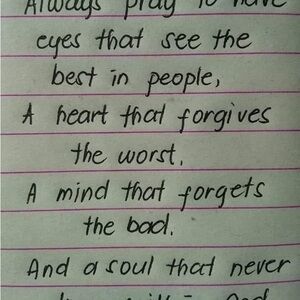 Always pray to have
eyes that see the
best in people,
A heart that forgives
the worst,
A mind that forgets
the bad.
And a soul that never